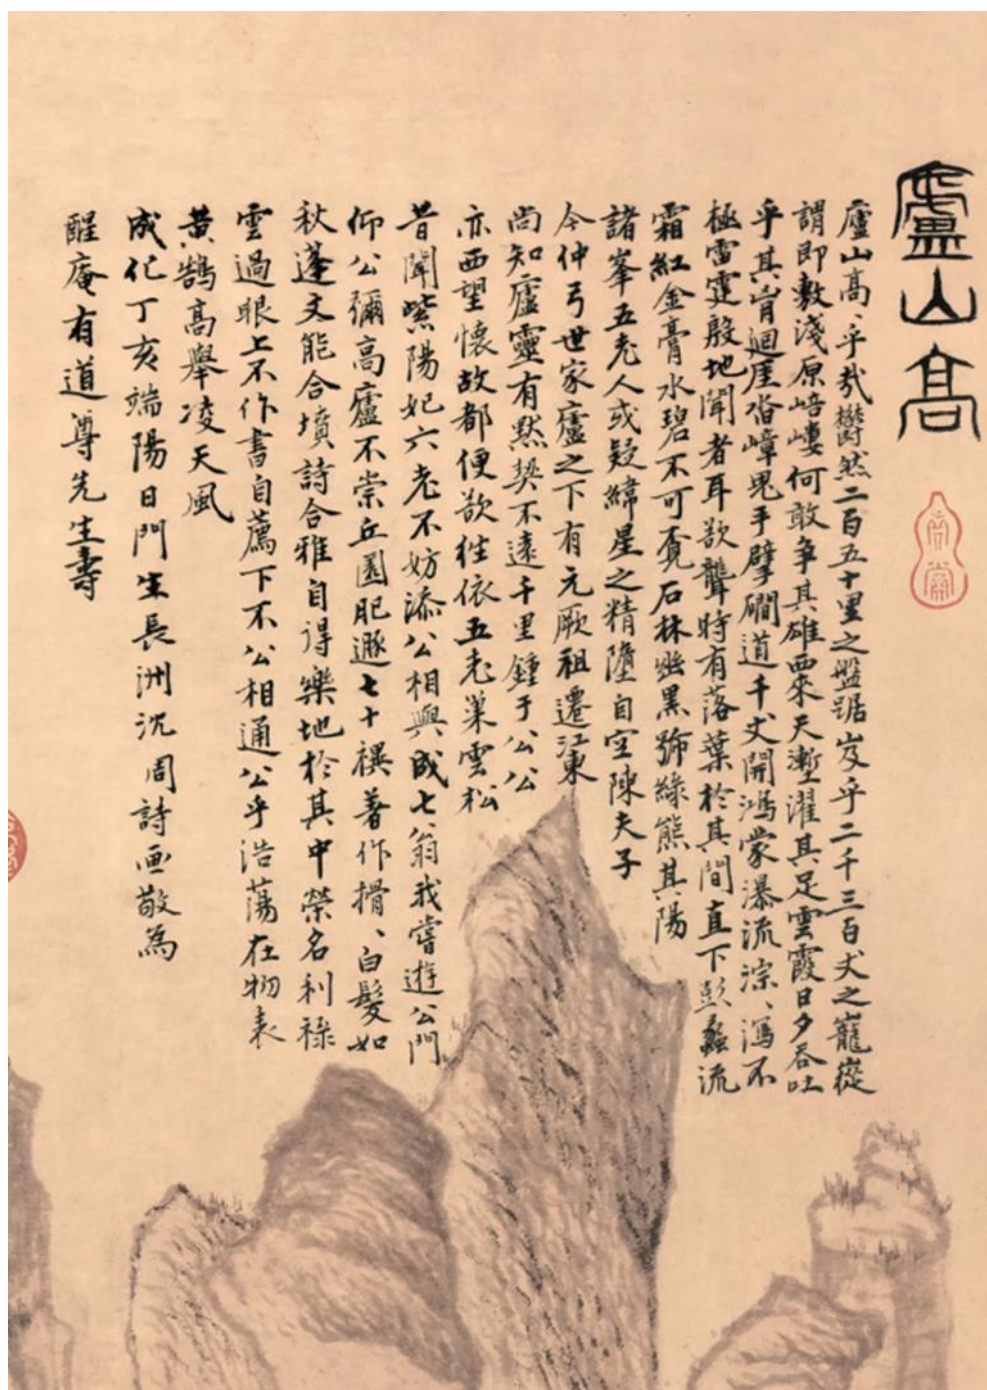 廬山高
廬山高、乎哉鬱然二百五十里之盤踞岌乎二千三百丈之巃嵸
謂即敷淺原峿嶁何敢爭其雄西來天塹濯其足雲霞日夕吞吐
乎其肯迴厓沓嶂鬼手擘磵道千丈開鴻蒙瀑流淙、瀉不
極雷霆殷地聞者耳欲聾時有落葉於其間直下彭蠡流
霜紅金膏水碧不可覓石林幽黑號綠熊其陽
諸峯五老人或疑緯星之精墮自空陳夫子
今仲弓世家廬之下有元厥祖遷江東
尚知廬靈有默契不遠千里鍾于公公
亦西望懷故都便欲徃依五老巢雲松
昔聞紫陽妃六老不妨添公相與成七翁我嘗遊公門
仰公彌高廬不崇丘園肥遯七十禩著作揹、白髮如
秋蓬文能合墳詩合雅自得樂地於其中榮名利祿
雲過眼上不作書自薦下不公相通公乎浩蕩在物表
黃鵠高舉凌天風
成化丁亥端陽日門生長洲沈周詩画敬為
醒庵有道尊先生壽